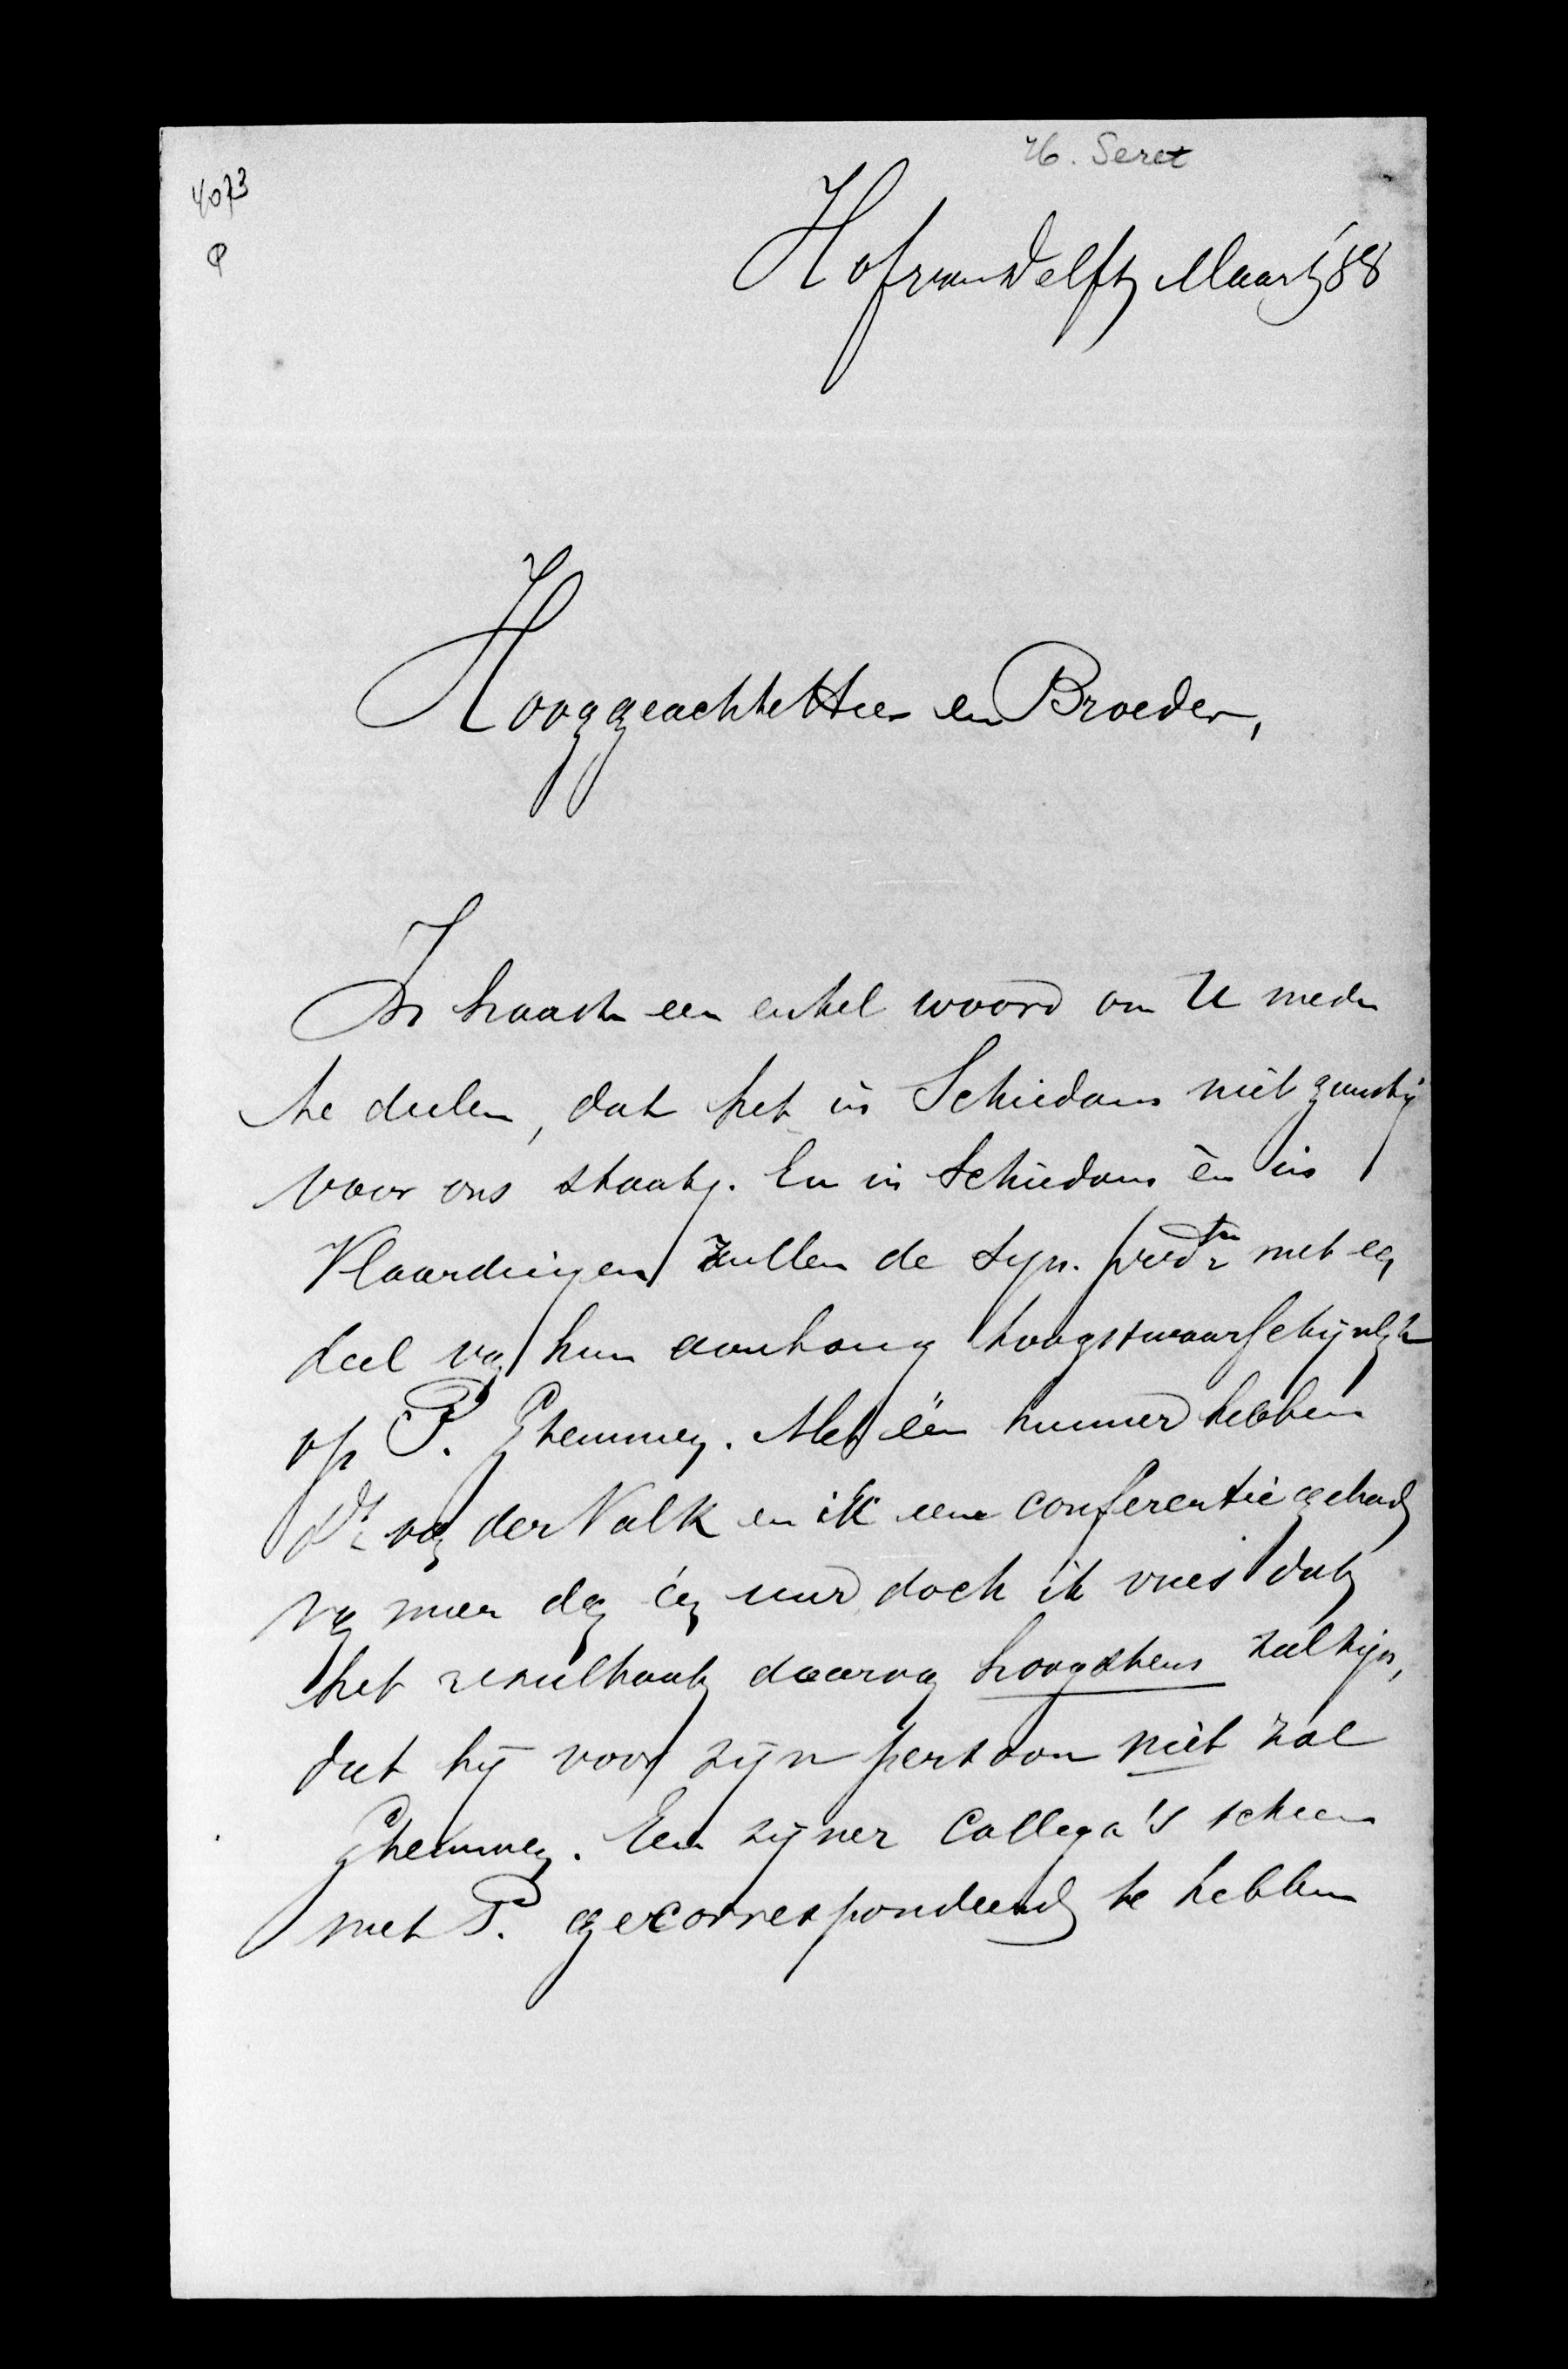 H. Seret
4073
P
Hof van Delft, Maart '88
Hooggeachte Heer en Broeder,
In haast een enkel woord om U mede
te deelen, dat het in Schiedam niet gunstig
voor ons staat. En in Schiedam èn in
Vlaardingen zullen de syn. predtn met een
deel van hun aanhang hoogstwaarschijnlijk
op P. stemmen. Met één hunner hebben
Dr van der Valk en ik eene conferentie gehad
van meer dan één uur doch ik vrees dat
het resultaat daarvan hoogstens zal zijn,
dat hij voor zijn persoon niet zal
stemmen. Een zijner Collega's scheen
met P. gecorrespondeerd te hebben